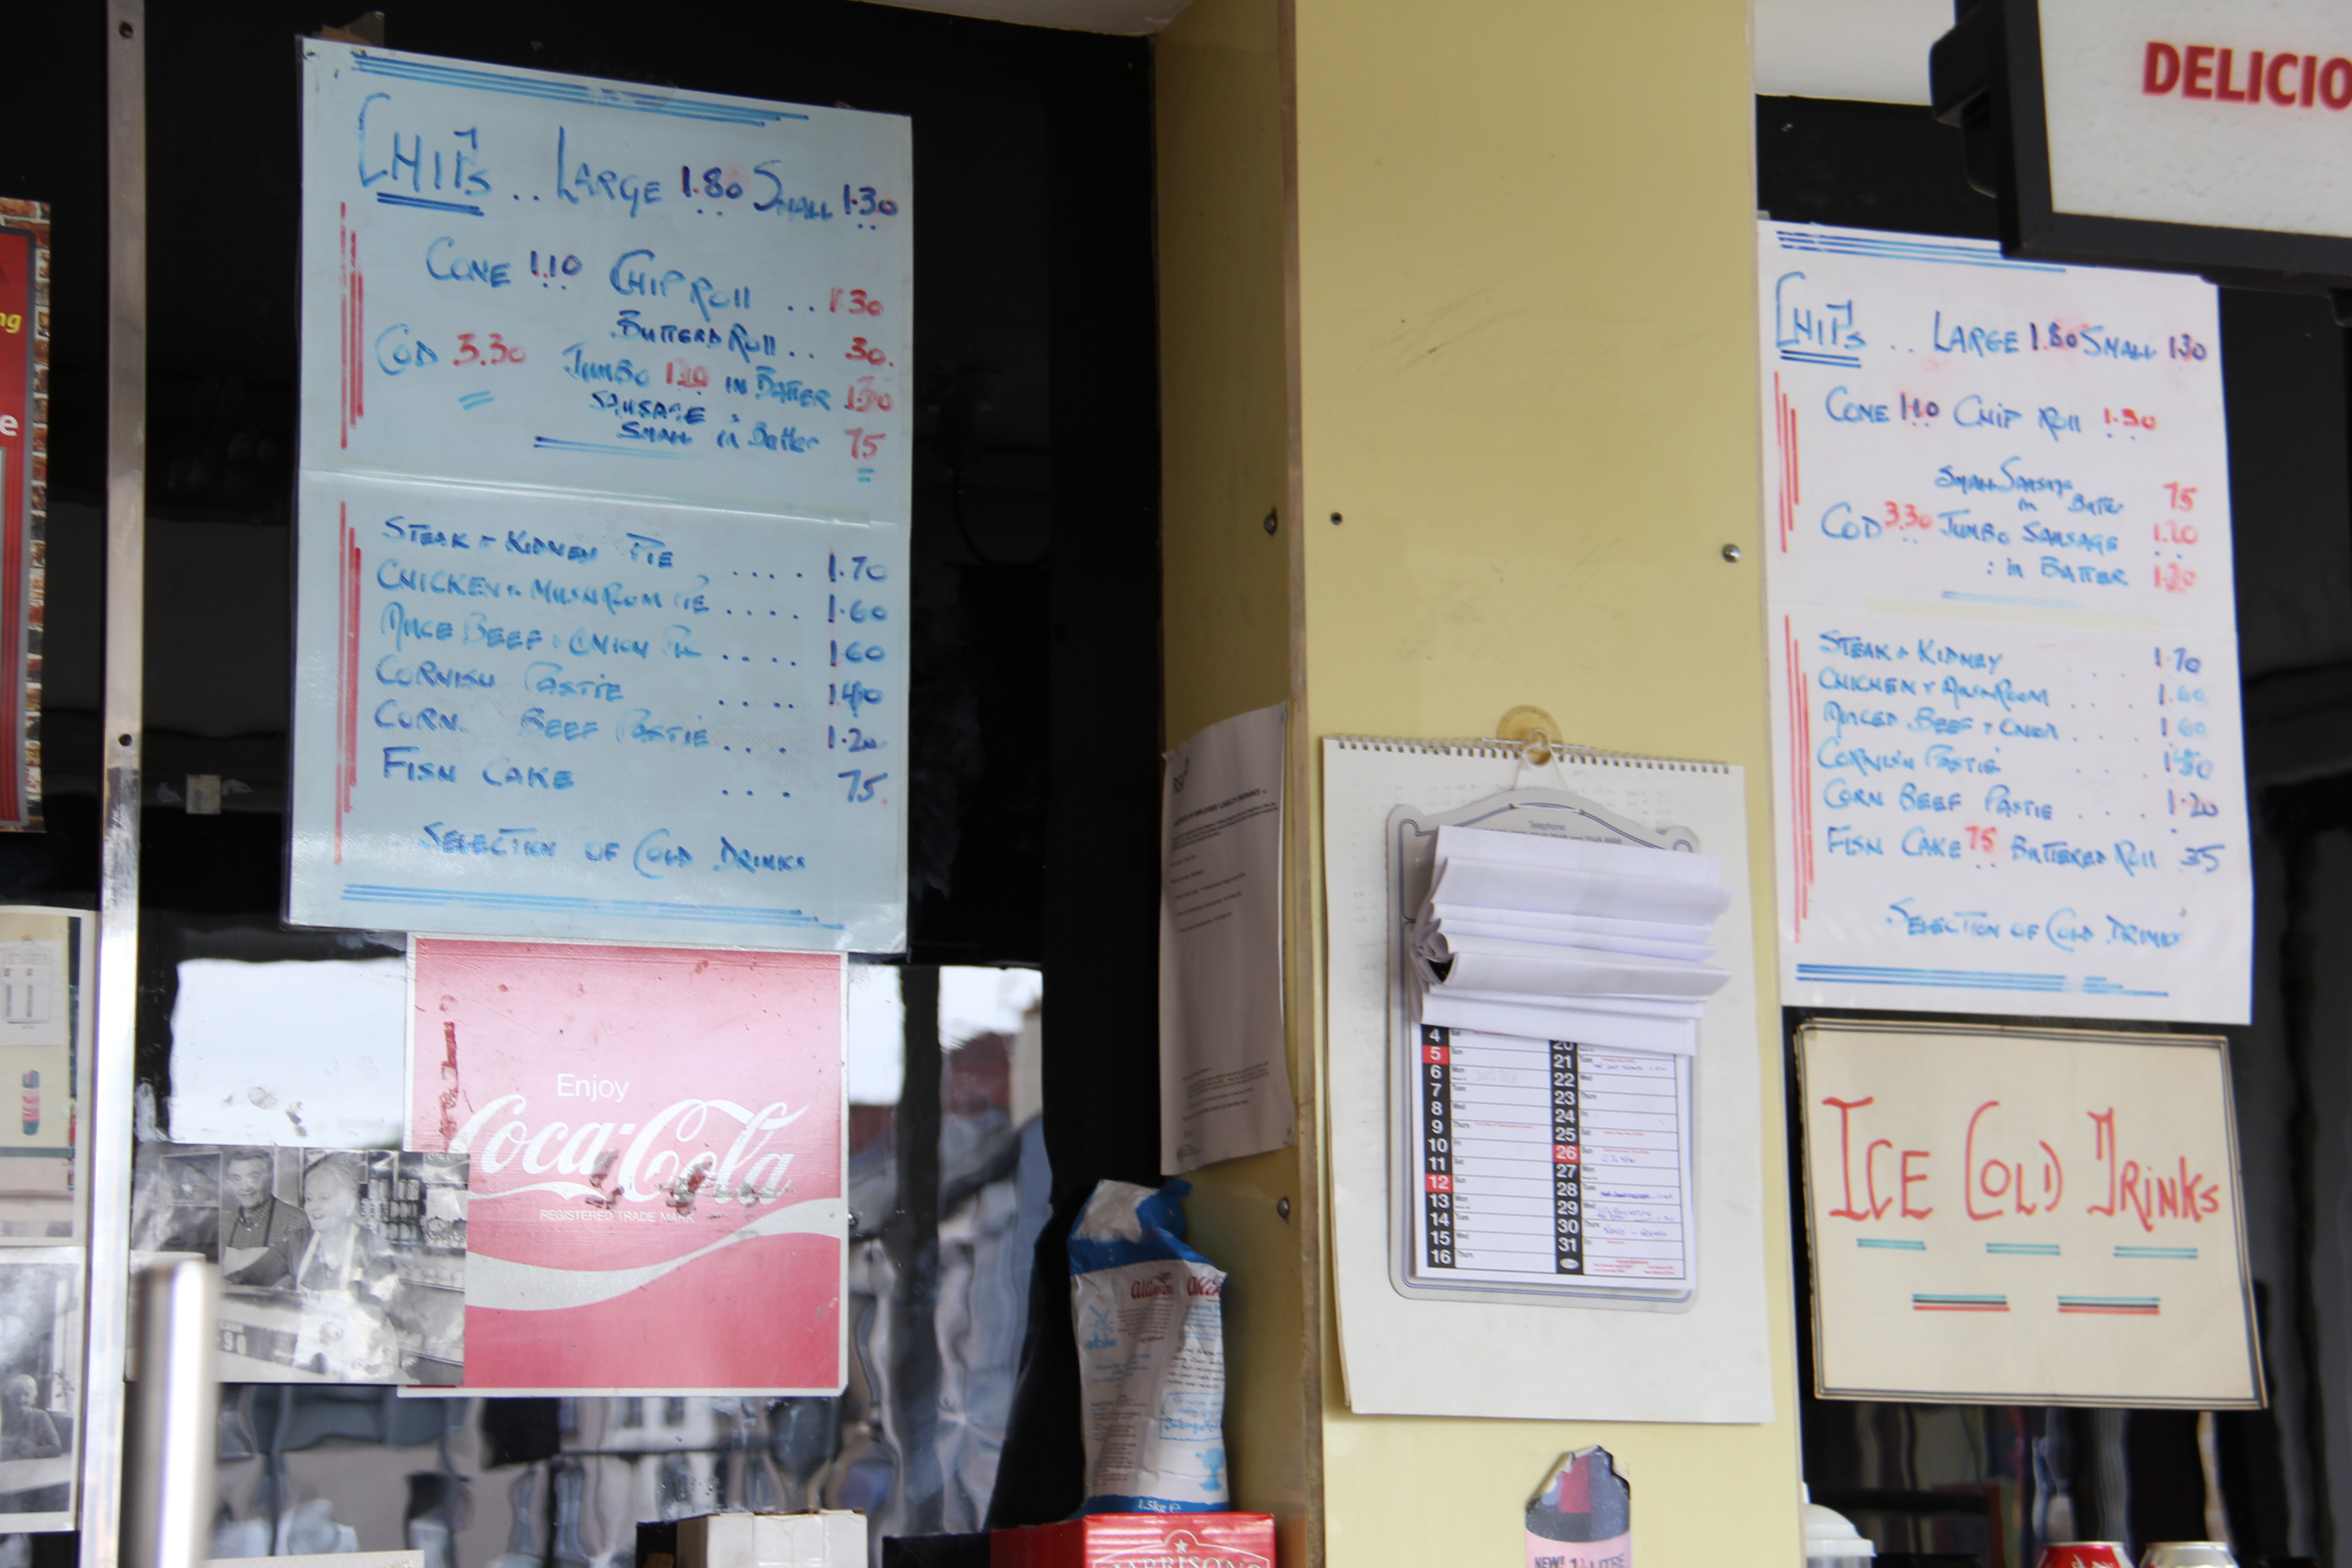 CHIPS .. LARGE 1.80 SMALL 1.30
CONE 1.10 CHIP ROLL .. 1.30
BUTTERD ROLL .. 30.
COD 3.30 JUMBO 1.20 IN BATTER 1.30
SAUSAGE
SMALL in Batter 75
STEAK + KIDNEY PIE .... 1.70
CHICKEN + MUSHROOM PIE .... 1.60
MINCE BEEF + ONION PIE .... 1.60
CORNISH PASTIE .... 1.40
CORN. BEEF PASTIE .... 1.20
FISH CAKE ... 75.
SELECTION OF COLD DRINKS
Enjoy
Coca-Cola
REGISTERED TRADE MARK
1.5kg e
Telephone
4
5 Sun
6 Mon
7 Tues
8 Wed
9 Thurs
10 Fri
11 Sat
12 Sun
13 Mon
14 Tues
15 Wed
16 Thurs
20
21 Tues
22 Wed
23 Thurs
24 Fri
25 Sat
26 Sun
27 Mon
28 Tues
29 Wed
30 Thurs
31 Fri
NEW! 1½ LITRE
DELICIO
CHIPS .. LARGE 1.80 SMALL 1.30
CONE 1.10 CHIP ROLL 1.30
SMALL SAUSAGE
in Batter 75
COD 3.30 JUMBO SAUSAGE 1.20
: in BATTER 1.30
STEAK + KIDNEY .... 1.70
CHICKEN + MUSHROOM .... 1.60
MINCED BEEF + ONION .... 1.60
CORNISH PASTIE ....
CORN BEEF PASTIE .... 1.20
FISH CAKE 75 BUTTERED ROLL 35
SELECTION OF COLD DRINKS
ICE COLD DRINKS